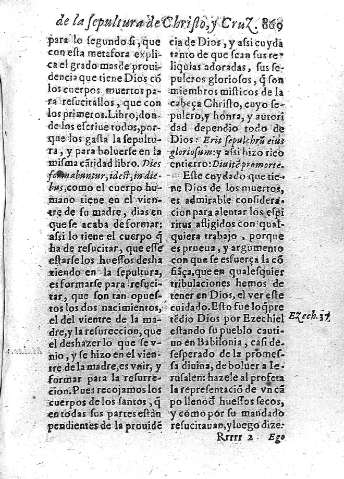 de la sepultura de Christo, y Cruz. 869
para lo segundo si, que
con esta metafora expli
ca el grado mas de proui
dencia que tiene Dios cõ
los cuerpos muertos pa-
ra resucitallos, que con
los primeros. Libro, don
de los escriue todos, por-
que los gasta la sepultu-
ra, y para boluerse en la
misma cãtidad libro. Dies
formabuntur, id est, in die
bus, como el cuerpo hu-
mano tiene en el vien-
tre de su madre, dias en
que se acaba de formar:
assi lo tiene el cuerpo q̃
ha de resucitar, que esse
estarse los huessos desha
ziendo en la sepultura,
es formarse para resuci-
tar, que son tan opues-
tos los dos nacimientos,
el del vientre de la ma-
dre, y la resureccion, que
el deshazer lo que se v-
nio, y se hizo en el vien-
tre de la madre, es vnir, y
formar para la resurre-
cion. Pues recojamos los
cuerpos de los santos, q̃
en todas sus partes están
pendientes de la prouidẽ
cia de Dios, y assi cuyda
tanto de que sean sus re
liquias adoradas, sus se-
pulcros gloriosos, q̃ son
miembros misticos de la
cabeça Christo, cuyo se-
pulcro, y honra, y autori
dad dependio todo de
Dios: Erit sepulchrũ eius
gloriosum: y assi hizo rico
entierro: Diuitẽ pro morte.
Este cuydado que tie-
ne Dios de los muertos,
es admirable considera-
cion para alentar los espi
ritus afligidos con qual-
quiera trabajo, porque
es prueua, y argumento
con que se esfuerça la cõ
fiãça, que en qualesquier
tribulaciones hemos de
tener en Dios, el ver este
cuidado. Esto fue lo q̃ pre
tẽdio Dios por Ezechiel
estando su pueblo cauti-
uo en Babilonia, casi de-
sesperado de la promes-
sa diuina, de boluer a Ie-
rusalen: hazele al profeta
la representació de vn cã
po llenoq̃ huessos secos,
y como por su mandado
resucitauan, y luego dize:
Ezech. 37.
Rrrrr 2 Ego